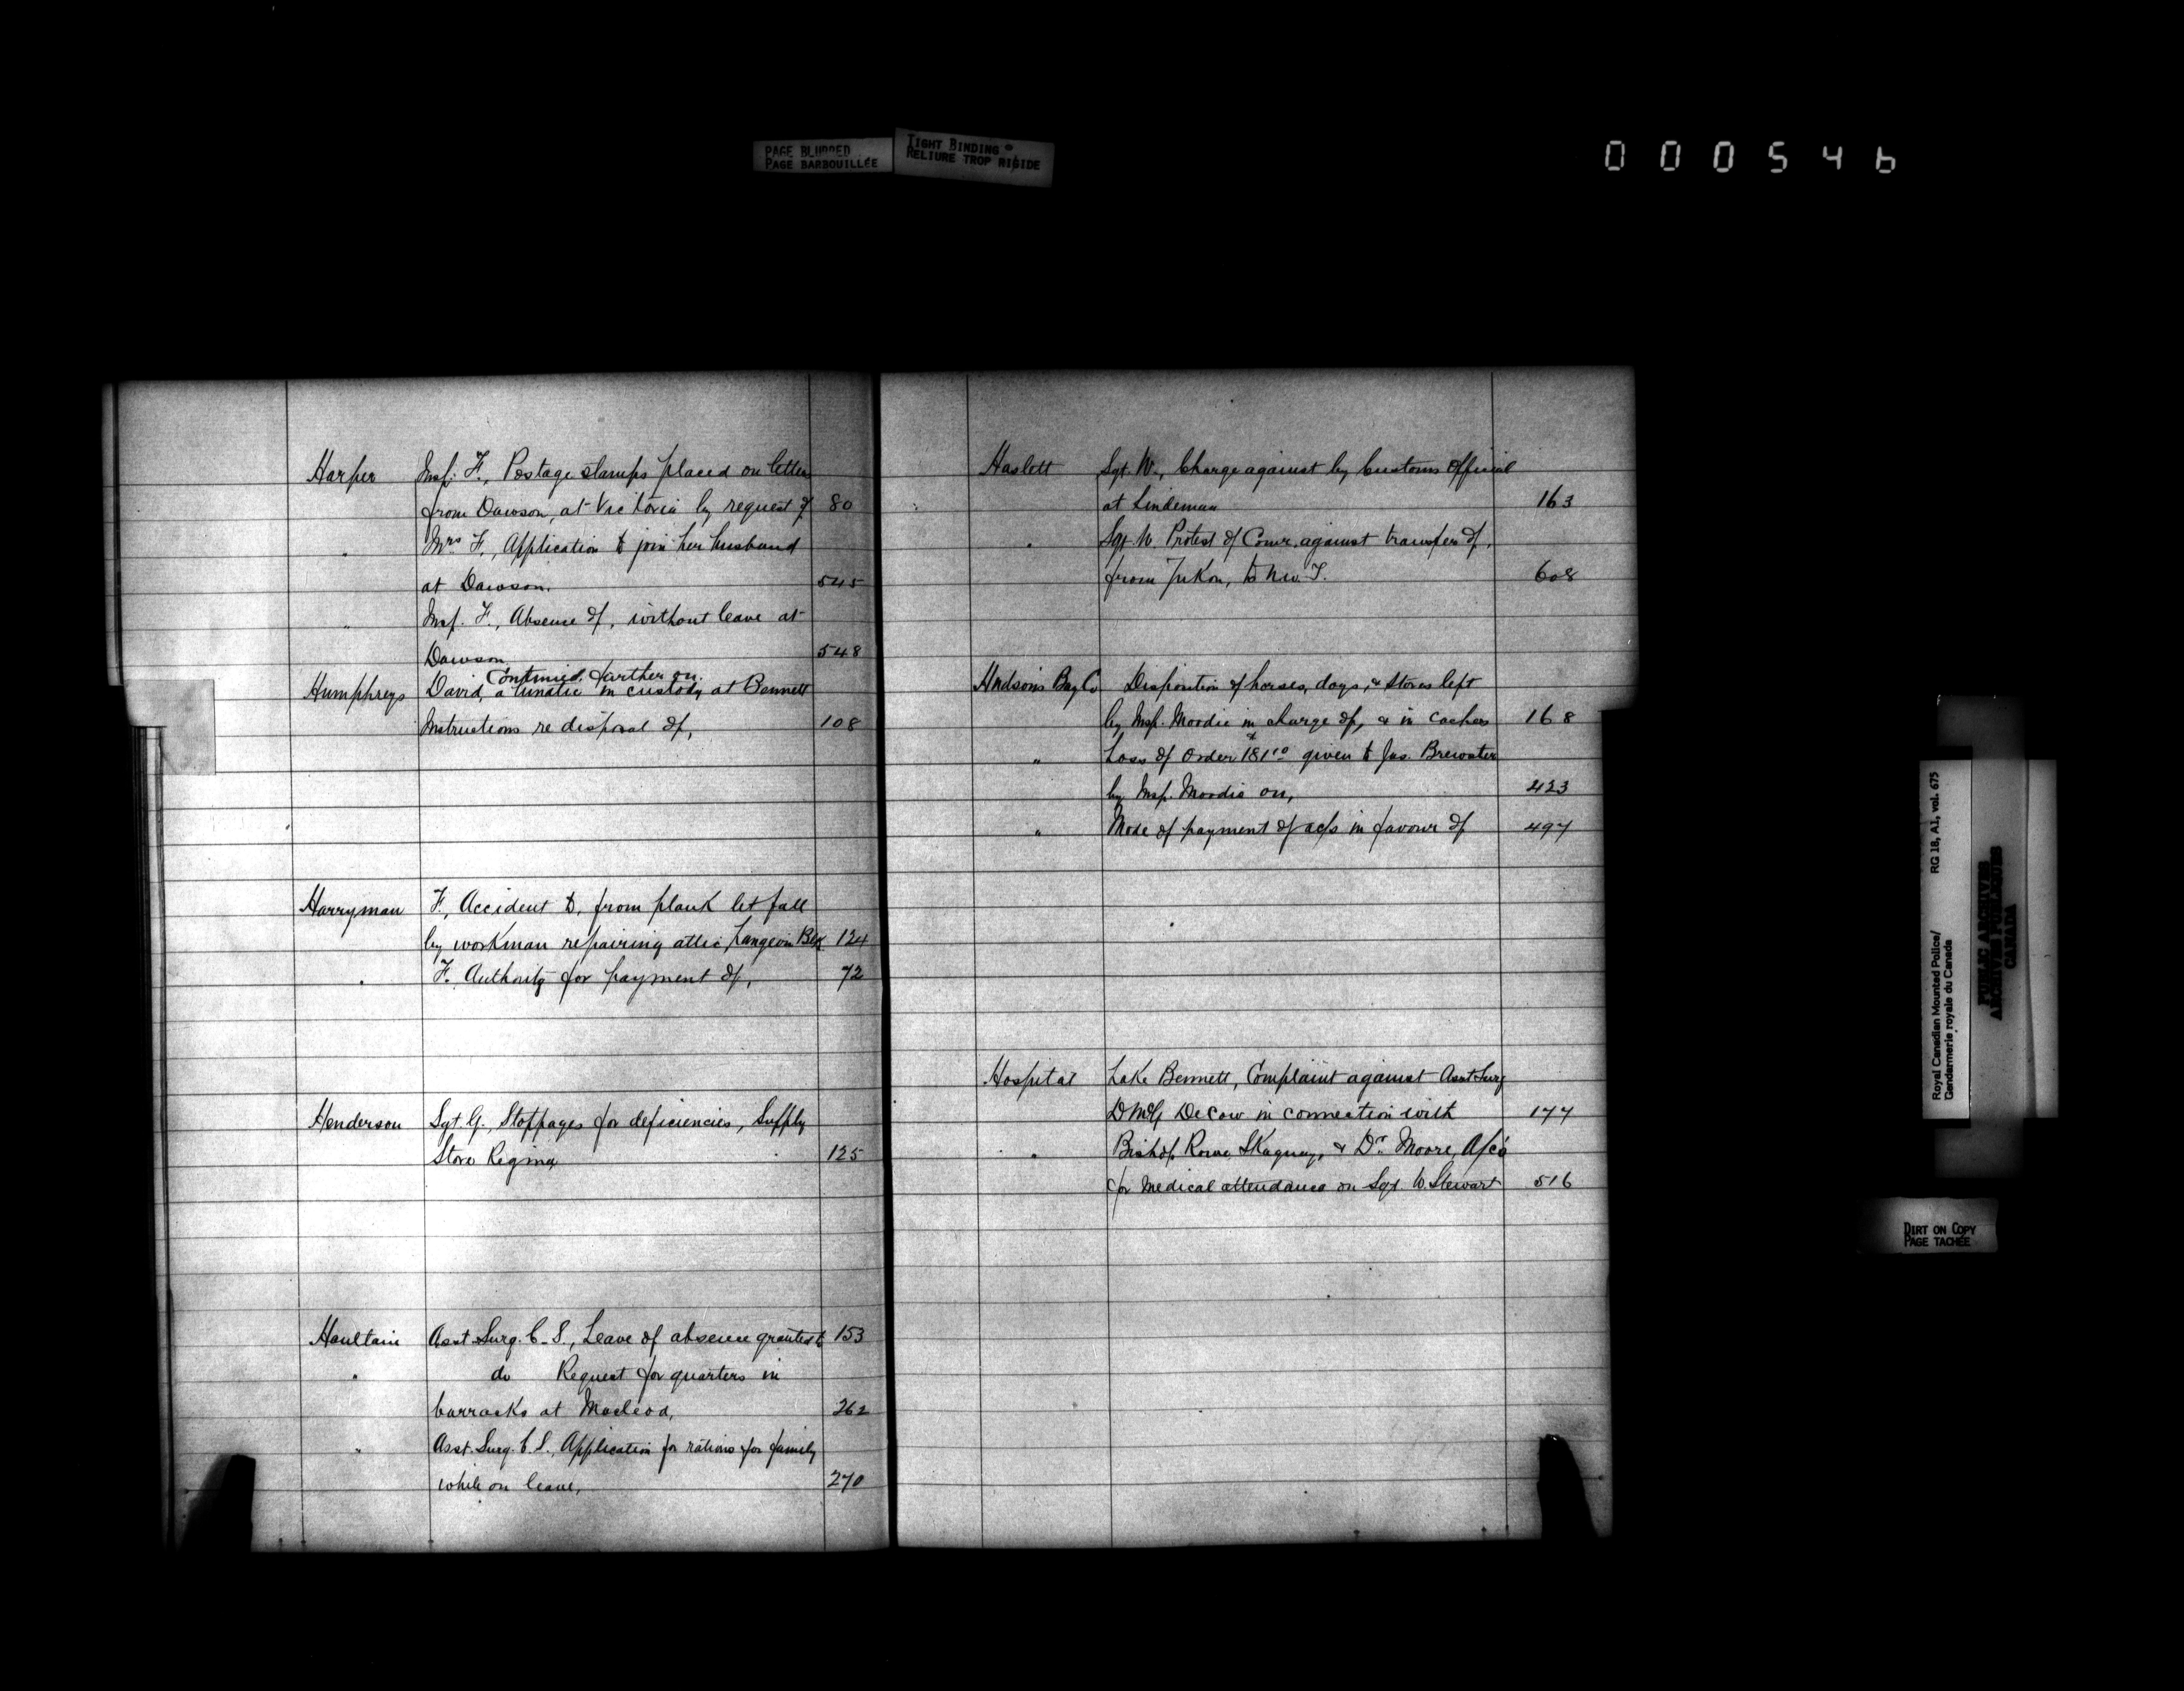 PAGE BLURRED
PAGE BARBOUILLÉE
TIGHT BINDING
RELIURE TROP RIGIDE
000546
Harper Insp. F., Postage stamps placed on letters
from Dawson, at Victoria by request of 80
" Mrs F., Application to join her husband
at Dawson. 545
" Insp. F., Absence of, without leave at
Dawson 548
Continued farther on.
Humphreys David, a lunatic in custody at Bennett
Instructions re disposal of, 108
Harryman F., Accident to, from plank let fall
by workman repairing attic, Langevin Blk 124
" F. Authority for payment of, 72
Henderson Sgt. G., Stoppages for deficiencies, Supply
Store Regina 125
Haultain Asst. Surg. C. S., Leave of absence granted to 153
" do Request for quarters in
barracks at Macleod, 262
" Asst. Surg. C. S., Application for rations for family
while on leave, 270
Haslett Sgt. W., Charge against by Customs Official
at Lindeman 163
" Sgt. W. Protest of Comr. against transfer of,
from Yukon, to N.W.T. 608
Hudson's Bay Co Disposition of horses, dogs, & stores left
by Insp. Moodie in charge of, & in caches 168
" Loss of Order $181.10 given to Jas. Brewster
by Insp. Moodie on, 423
" Mode of payment of a/cs in favour of 497
Hospital Lake Bennett, Complaint against Asst Surg
Decow in connection with 177
" Bishop Rowe, Skaguay, & Dr. Moore, A/cs
for medical attendance on Sgt. W. Stewart 516
Royal Canadian Mounted Police/ RG 18, A1, vol. 675
Gendarmerie royale du Canada
PUBLIC ARCHIVES
ARCHIVES PUBLIQUES
CANADA
DIRT ON COPY
PAGE TACHÉE